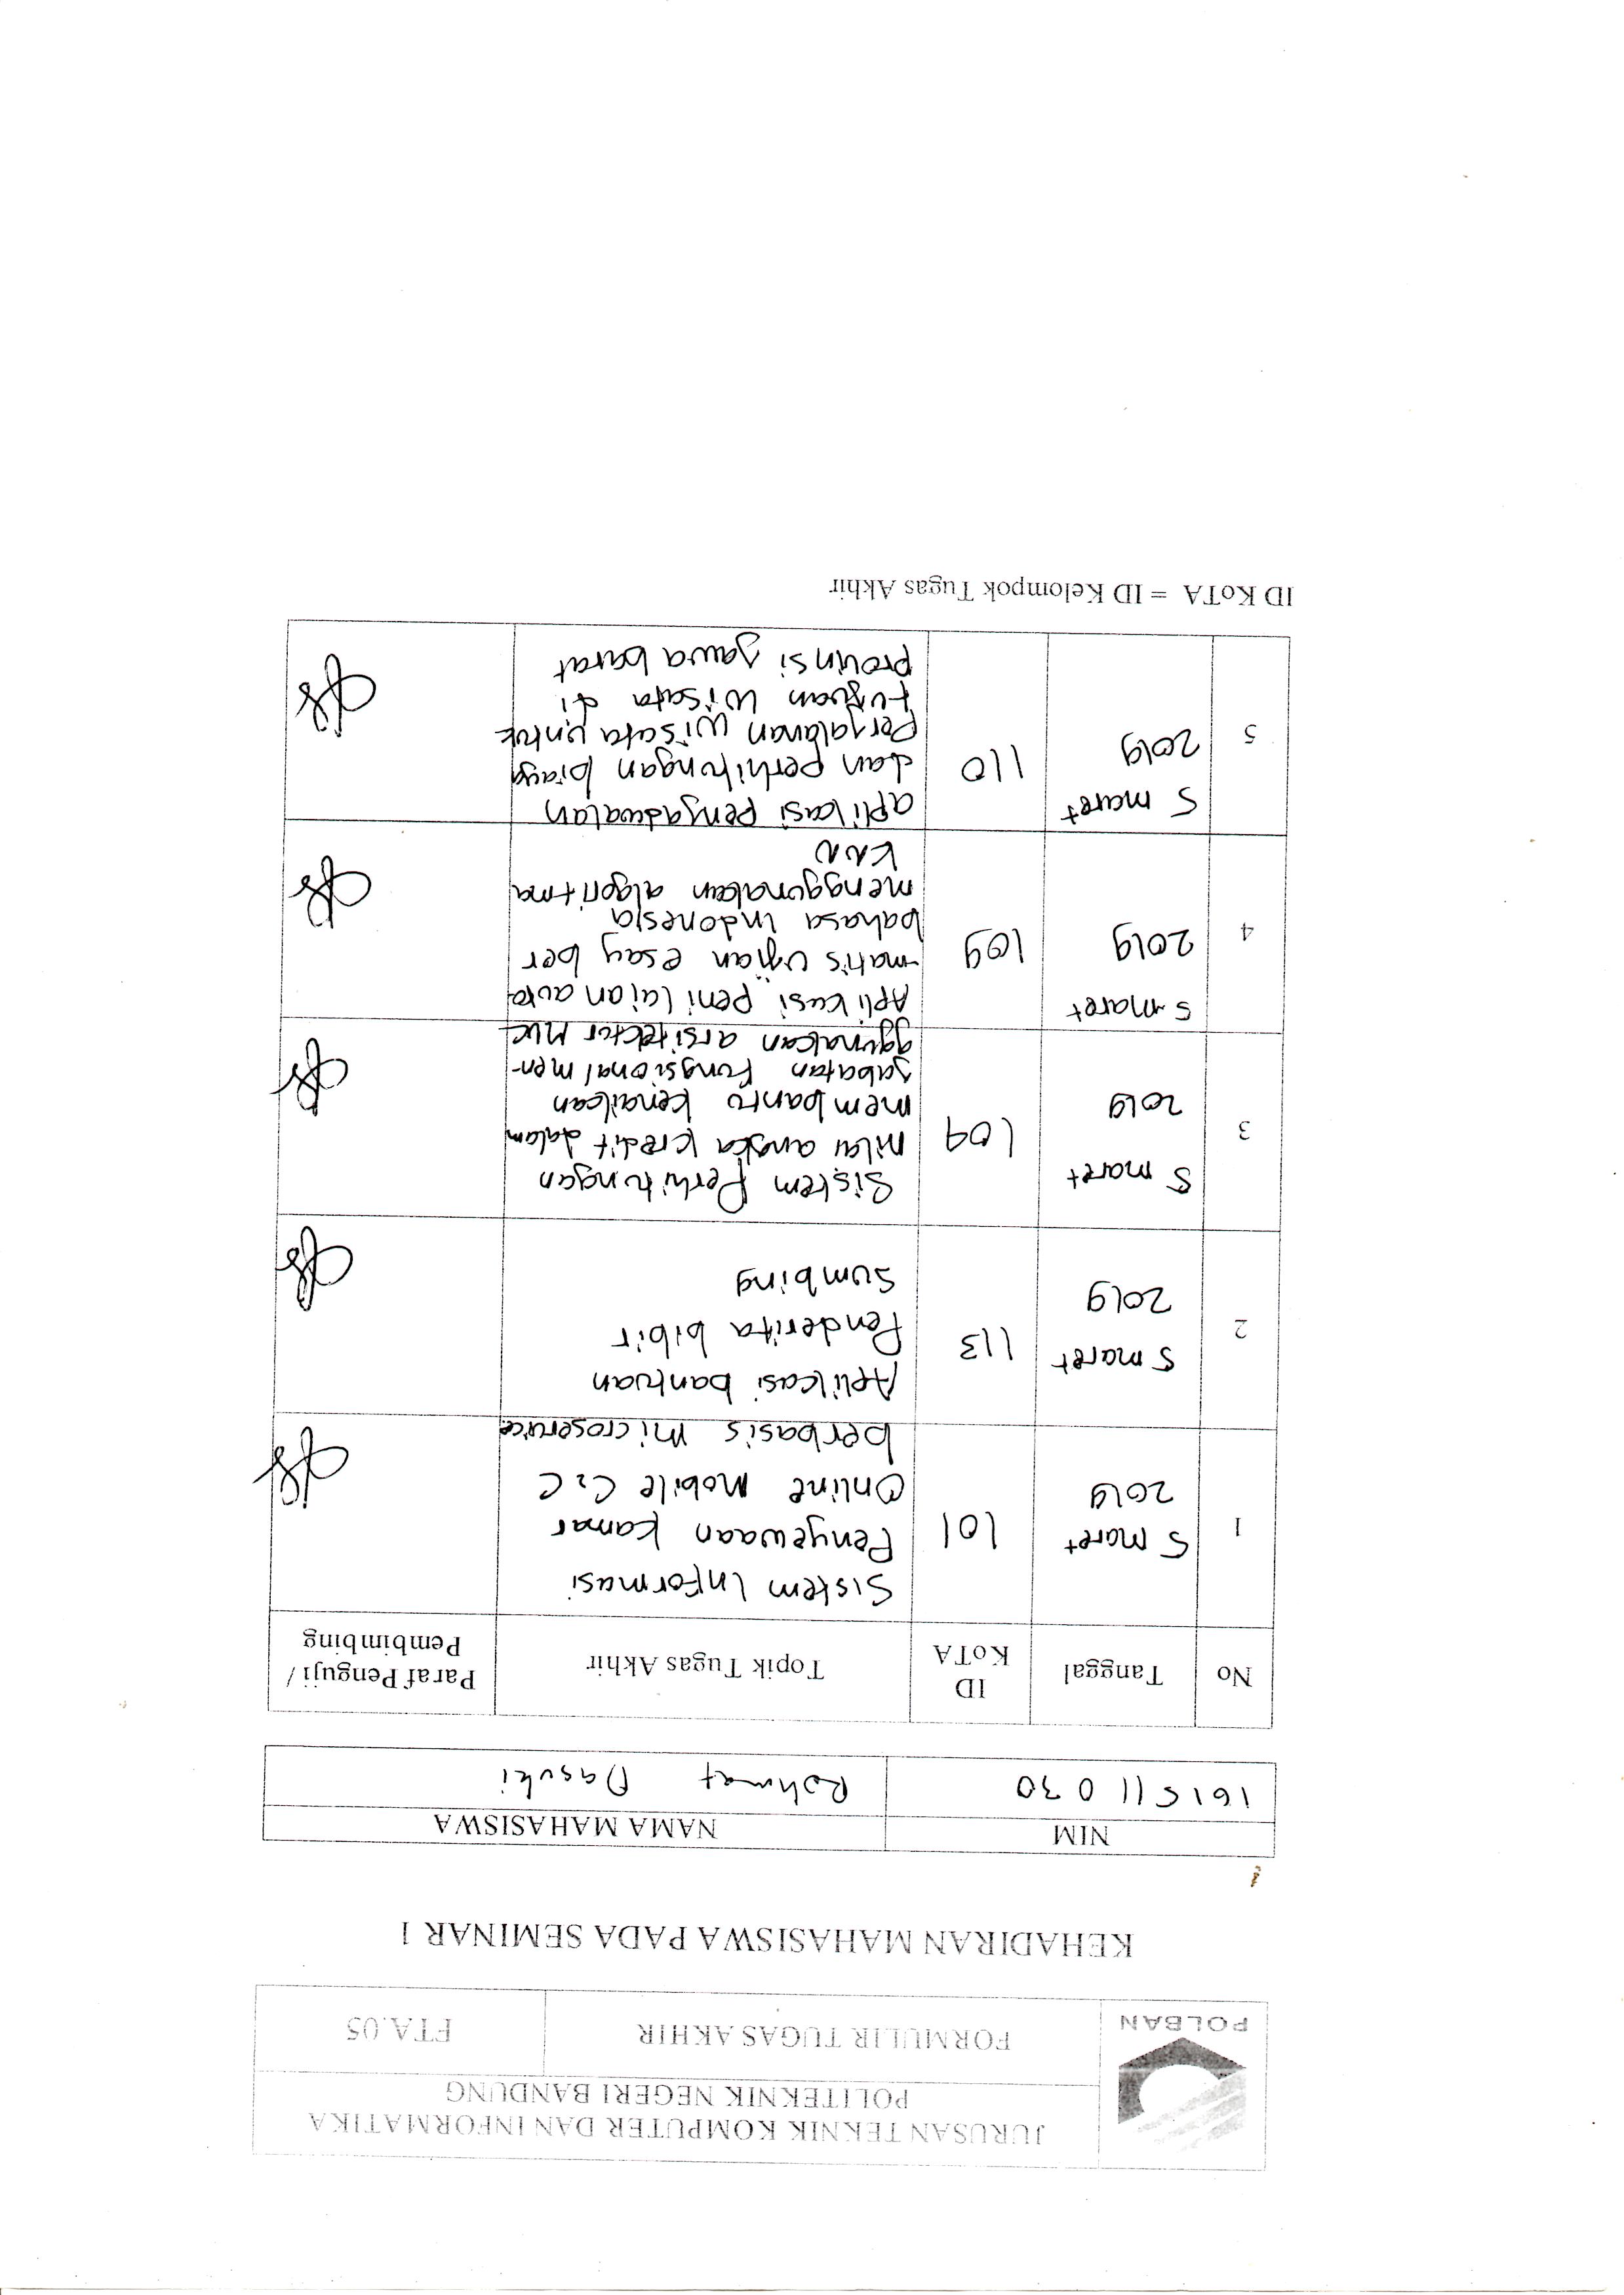 JURUSAN TEKNIK KOMPUTER DAN INFORMATIKA
POLITEKNIK NEGERI BANDUNG
POLBAN
FORMULIR TUGAS AKHIR
FTA.05
KEHADIRAN MAHASISWA PADA SEMINAR 1
NIM
NAMA MAHASISWA
161511030
Rohmat Dasuki
No
Tanggal
ID
KoTA
Topik Tugas Akhir
Paraf Penguji/
Pembimbing
1
5 maret
2019
101
Sistem Informasi
Penyewaan kamar
Online Mobile C2C
berbasis Microservice
2
5 maret
2019
113
Aplikasi bantuan
Penderita bibir
Sumbing
3
5 maret
2019
109
Sistem Perhitungan
nilai angka kredit dalam
membantu kenaikan
jabatan Fungsional men-
ggunakan arsitektur MVC
4
5 maret
2019
109
Aplikasi penilaian auto
-matis Ujian esay ber
bahasa indonesia
menggunakan algoritma
KNN
5
5 maret
2019
110
aplikasi penjadwalan
dan perhitungan biaya
Perjalanan wisata untuk
tujuan wisata di
provinsi jawa barat
ID KoTA = ID Kelompok Tugas Akhir